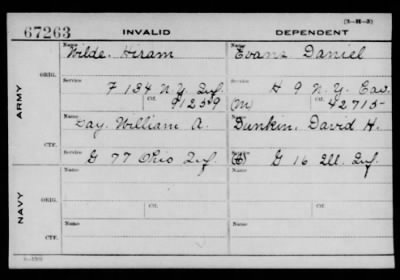 (3-H-3)
67263 INVALID DEPENDENT
Name Wilde, Hiram Name Evans Daniel
ORIG.
Service F 134 N.Y. Inf. Service H 9 N.Y. Cav.
Ctf. 912529 (M) Ctf. 42715
ARMY
Name Day, William A. Name Dunkin, David H.
CTF.
Service G 77 Ohio Inf. Service G 16 Ill. Inf.
Name Name
ORIG.
Service Ctf. Service Ctf.
NAVY
Name Name
CTF.
Service Service